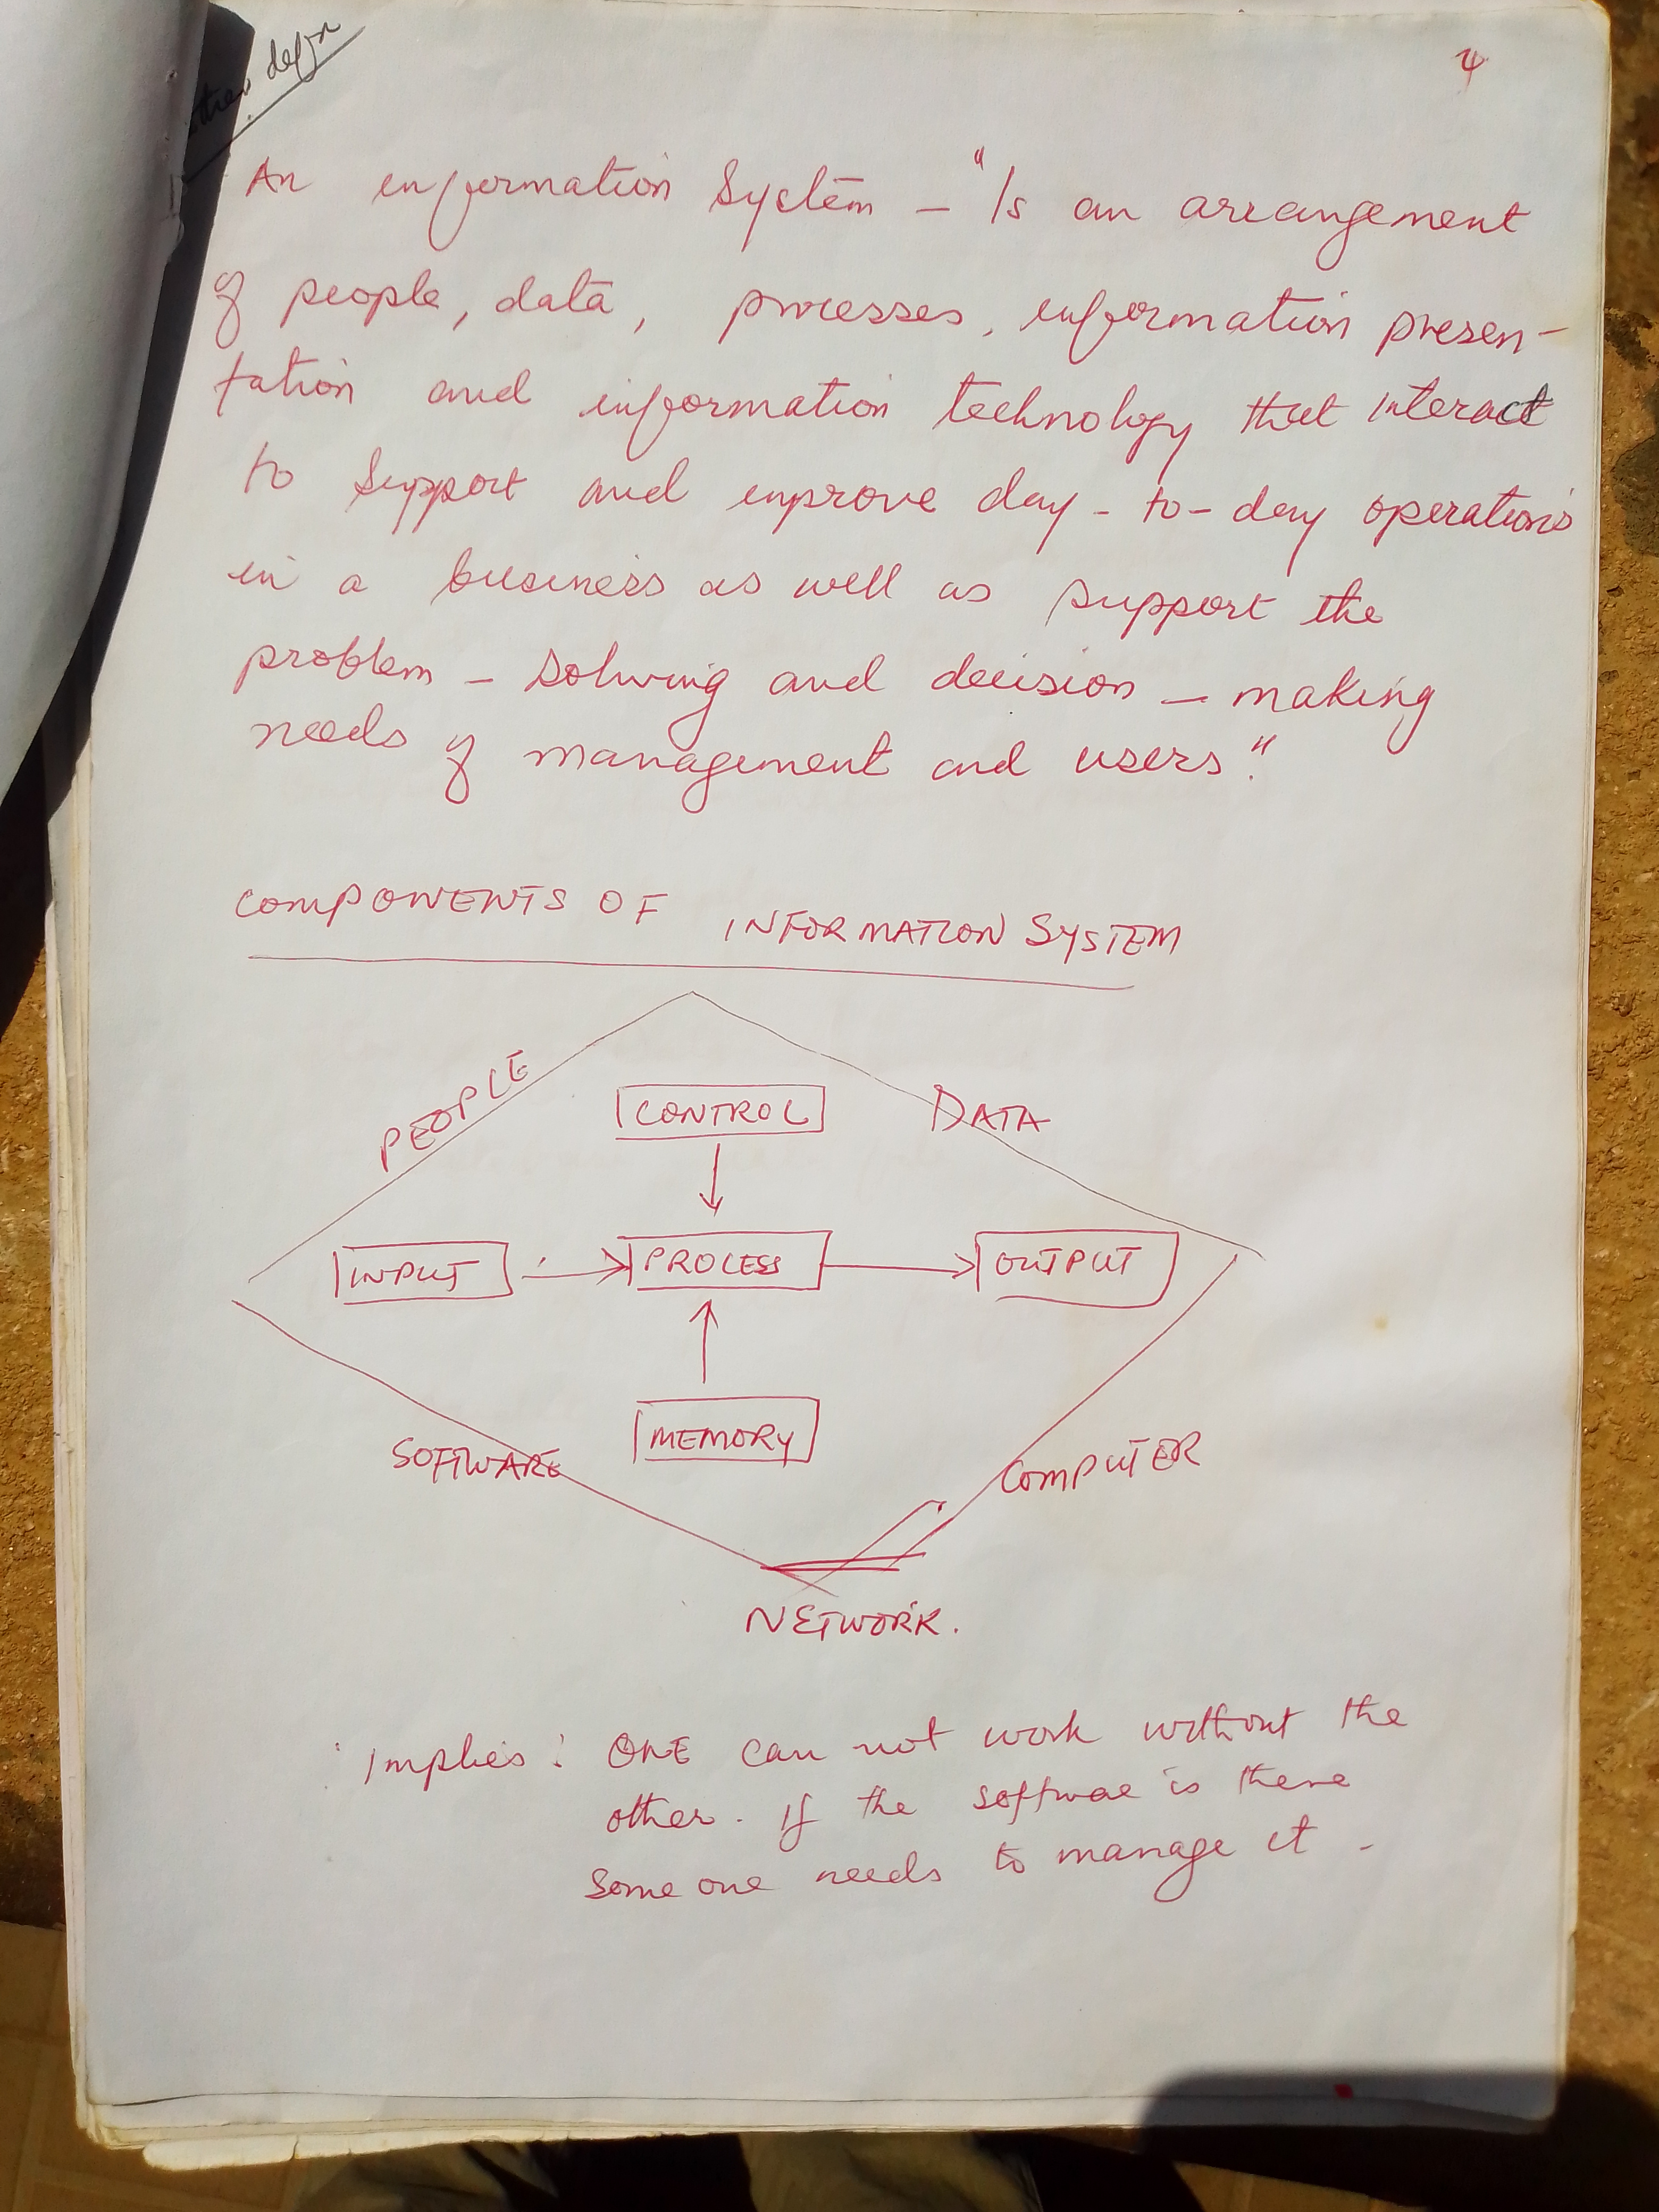 defn
4
An information System - "Is an arrangement
of people, data, processes, information presen-
tation and information technology that interact
to support and improve day-to-day operations
in a business as well as support the
problem - solving and decision - making
needs of management and users."
COMPONENTS OF INFORMATION SYSTEM
PEOPLE
DATA
CONTROL
INPUT
PROCESS
OUTPUT
MEMORY
SOFTWARE
COMPUTER
NETWORK.
Implies: ONE can not work without the
other. If the softwae is there
some one needs to manage it -